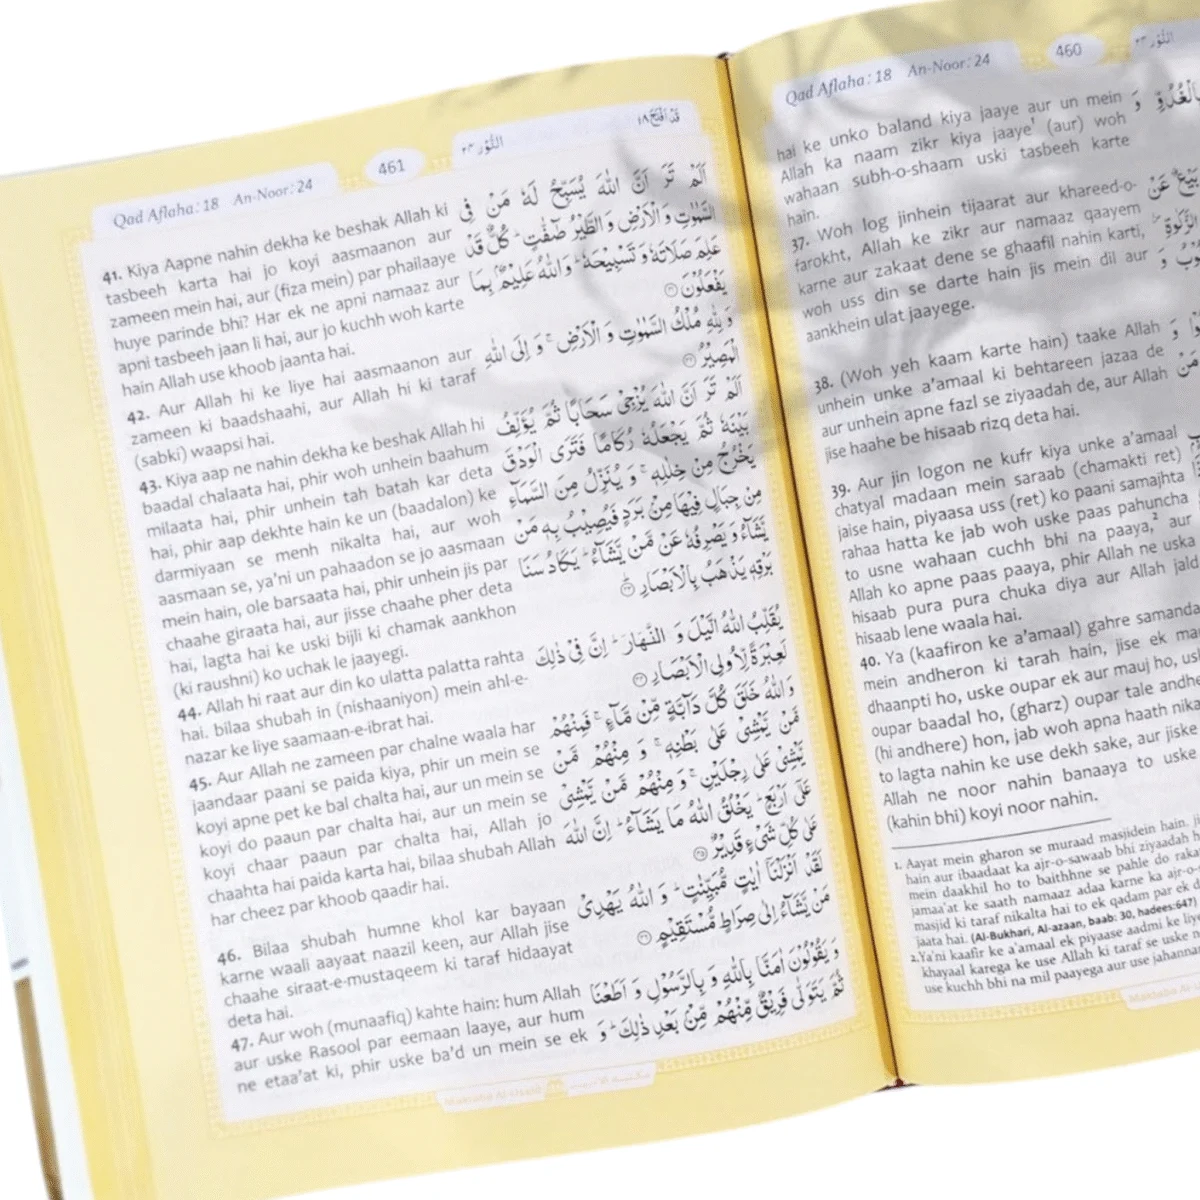 Qad Aflaha: 18 An-Noor: 24
460
النُّوْر ٢٤
hai ke unko baland kiya jaaye aur un mein
Allah ka naam zikr kiya jaaye¹ (aur) woh
wahaan subh-o-shaam uski tasbeeh karte
hain.
37. Woh log jinhein tijaarat aur khareed-o-
farokht, Allah ke zikr aur namaaz qaayem
karne aur zakaat dene se ghaafil nahin karti,
woh uss din se darte hain jis mein dil aur
aankhein ulat jaayege.
38. (Woh yeh kaam karte hain) taake Allah
unhein unke a'maal ki behtareen jazaa de
aur unhein apne fazl se ziyaadah de, aur Allah
jise haahe be hisaab rizq deta hai.
39. Aur jin logon ne kufr kiya unke a'maal
chatyal madaan mein saraab (chamakti ret)
jaise hain, piyaasa uss (ret) ko paani samajhta
rahaa hatta ke jab woh uske paas pahuncha
to usne wahaan cuchh bhi na paaya,² aur
Allah ko apne paas paaya, phir Allah ne uska
hisaab pura pura chuka diya aur Allah jald
hisaab lene waala hai.
40. Ya (kaafiron ke a'maal) gahre samanda
mein andheron ki tarah hain, jise ek ma
dhaanpti ho, uske oupar ek aur mauj ho, us
oupar baadal ho, (gharz) oupar tale andhe
(hi andhere) hon, jab woh apna haath nika
to lagta nahin ke use dekh sake, aur jiske
Allah ne noor nahin banaaya to uske
(kahin bhi) koyi noor nahin.
بِالْغُدُوِّ وَ
بَيْعٌ عَنْ
1. Aayat mein gharon se muraad masjidein hain.
hain aur ibaadaat ka ajr-o-sawaab bhi ziyaadah
mein daakhil ho to baithhne se pahle do raka
jamaa'at ke saath namaaz adaa karne ka ajr-o-
masjid ki taraf nikalta hai to ek qadam par ek d
jaata hai. (Al-Bukhari, Al-azaan, baab: 30, hadees:647)
2. Ya'ni kaafir ke a'maal ek piyaase aadmi ke liy
khayaal karega ke use Allah ki taraf se uske n
use kuchh bhi na mil paayega aur use jahanna
Qad Aflaha: 18 An-Noor: 24
461
النُّوْر ٢٤
قَدْ اَفْلَحَ ١٨
41. Kiya Aapne nahin dekha ke beshak Allah ki
tasbeeh karta hai jo koyi aasmaanon aur
zameen mein hai, aur (fiza mein) par phailaaye
huye parinde bhi? Har ek ne apni namaaz aur
apni tasbeeh jaan li hai, aur jo kuchh woh karte
hain Allah use khoob jaanta hai.
42. Aur Allah hi ke liye hai aasmaanon aur
zameen ki baadshaahi, aur Allah hi ki taraf
(sabki) waapsi hai.
43. Kiya aap ne nahin dekha ke beshak Allah hi
baadal chalaata hai, phir woh unhein baahum
milaata hai, phir unhein tah batah kar deta
hai, phir aap dekhte hain ke un (baadalon) ke
darmiyaan se menh nikalta hai, aur woh
aasmaan se, ya'ni un pahaadon se jo aasmaan
mein hain, ole barsaata hai, phir unhein jis par
chaahe giraata hai, aur jisse chaahe pher deta
hai, lagta hai ke uski bijli ki chamak aankhon
(ki raushni) ko uchak le jaayegi.
44. Allah hi raat aur din ko ulatta palatta rahta
hai. bilaa shubah in (nishaaniyon) mein ahl-e-
nazar ke liye saamaan-e-ibrat hai.
45. Aur Allah ne zameen par chalne waala har
jaandaar paani se paida kiya, phir un mein se
koyi apne pet ke bal chalta hai, aur un mein se
koyi do paaun par chalta hai, aur un mein se
koyi chaar paaun par chalta hai, Allah jo
chaahta hai paida karta hai, bilaa shubah Allah
har cheez par khoob qaadir hai.
46. Bilaa shubah humne khol kar bayaan
karne waali aayaat naazil keen, aur Allah jise
chaahe siraat-e-mustaqeem ki taraf hidaayat
deta hai.
47. Aur woh (munaafiq) kahte hain: hum Allah
aur uske Rasool par eemaan laaye, aur hum
ne etaa'at ki, phir uske ba'd un mein se ek
اَلَمْ تَرَ اَنَّ اللّٰهَ يُسَبِّحُ لَهٗ مَنْ فِى
السَّمٰوٰتِ وَ الْاَرْضِ وَ الطَّيْرُ صٰٓفّٰتٍ ؕ كُلٌّ قَدْ
عَلِمَ صَلَاتَهٗ وَ تَسْبِيْحَهٗ ؕ وَ اللّٰهُ عَلِيْمٌۢ بِمَا
يَفْعَلُوْنَ ۝٤١
وَ لِلّٰهِ مُلْكُ السَّمٰوٰتِ وَ الْاَرْضِ ۚ وَ اِلَى اللّٰهِ
الْمَصِيْرُ ۝٤٢
اَلَمْ تَرَ اَنَّ اللّٰهَ يُزْجِىْ سَحَابًا ثُمَّ يُؤَلِّفُ
بَيْنَهٗ ثُمَّ يَجْعَلُهٗ رُكَامًا فَتَرَى الْوَدْقَ
يَخْرُجُ مِنْ خِلٰلِهٖ ۚ وَ يُنَزِّلُ مِنَ السَّمَآءِ
مِنْ جِبَالٍ فِيْهَا مِنْۢ بَرَدٍ فَيُصِيْبُ بِهٖ مَنْ
يَّشَآءُ وَ يَصْرِفُهٗ عَنْ مَّنْ يَّشَآءُ ؕ يَكَادُ سَنَا
بَرْقِهٖ يَذْهَبُ بِالْاَبْصَارِ ۝٤٣
يُقَلِّبُ اللّٰهُ الَّيْلَ وَ النَّهَارَ ؕ اِنَّ فِىْ ذٰلِكَ
لَعِبْرَةً لِّاُولِى الْاَبْصَارِ ۝٤٤
وَ اللّٰهُ خَلَقَ كُلَّ دَآبَّةٍ مِّنْ مَّآءٍ ۚ فَمِنْهُمْ
مَّنْ يَّمْشِىْ عَلٰى بَطْنِهٖ ۚ وَ مِنْهُمْ مَّنْ
يَّمْشِىْ عَلٰى رِجْلَيْنِ ۚ وَ مِنْهُمْ مَّنْ يَّمْشِىْ
عَلٰٓى اَرْبَعٍ ؕ يَخْلُقُ اللّٰهُ مَا يَشَآءُ ؕ اِنَّ اللّٰهَ
عَلٰى كُلِّ شَىْءٍ قَدِيْرٌ ۝٤٥
لَقَدْ اَنْزَلْنَآ اٰيٰتٍ مُّبَيِّنٰتٍ ؕ وَ اللّٰهُ يَهْدِىْ
مَنْ يَّشَآءُ اِلٰى صِرَاطٍ مُّسْتَقِيْمٍ ۝٤٦
وَ يَقُوْلُوْنَ اٰمَنَّا بِاللّٰهِ وَ بِالرَّسُوْلِ وَ اَطَعْنَا
ثُمَّ يَتَوَلّٰى فَرِيْقٌ مِّنْهُمْ مِّنْۢ بَعْدِ ذٰلِكَ ؕ وَ